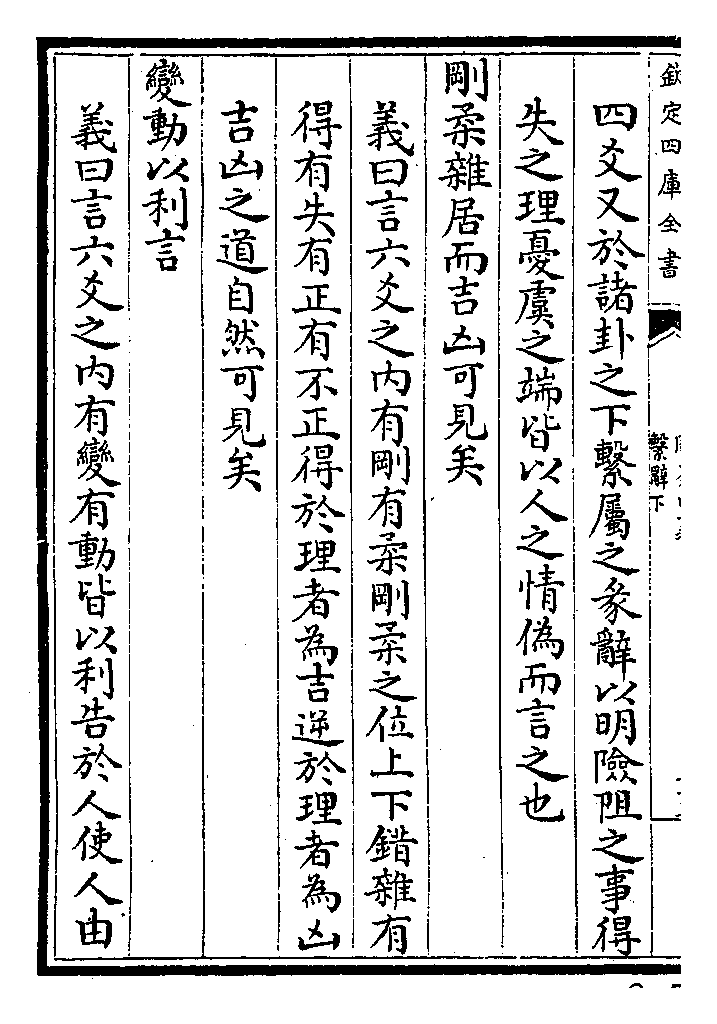 欽定四庫全書
繫辭下
四爻又於諸卦之下繫屬之彖辭以明險阻之事得
失之理憂虞之端皆以人之情偽而言之也
剛柔雜居而吉凶可見矣
義曰言六爻之内有剛有柔剛柔之位上下錯雜有
得有失有正有不正得於理者為吉逆於理者為凶
吉凶之道自然可見矣
變動以利言
義曰言六爻之内有變有動皆以利告於人使人由